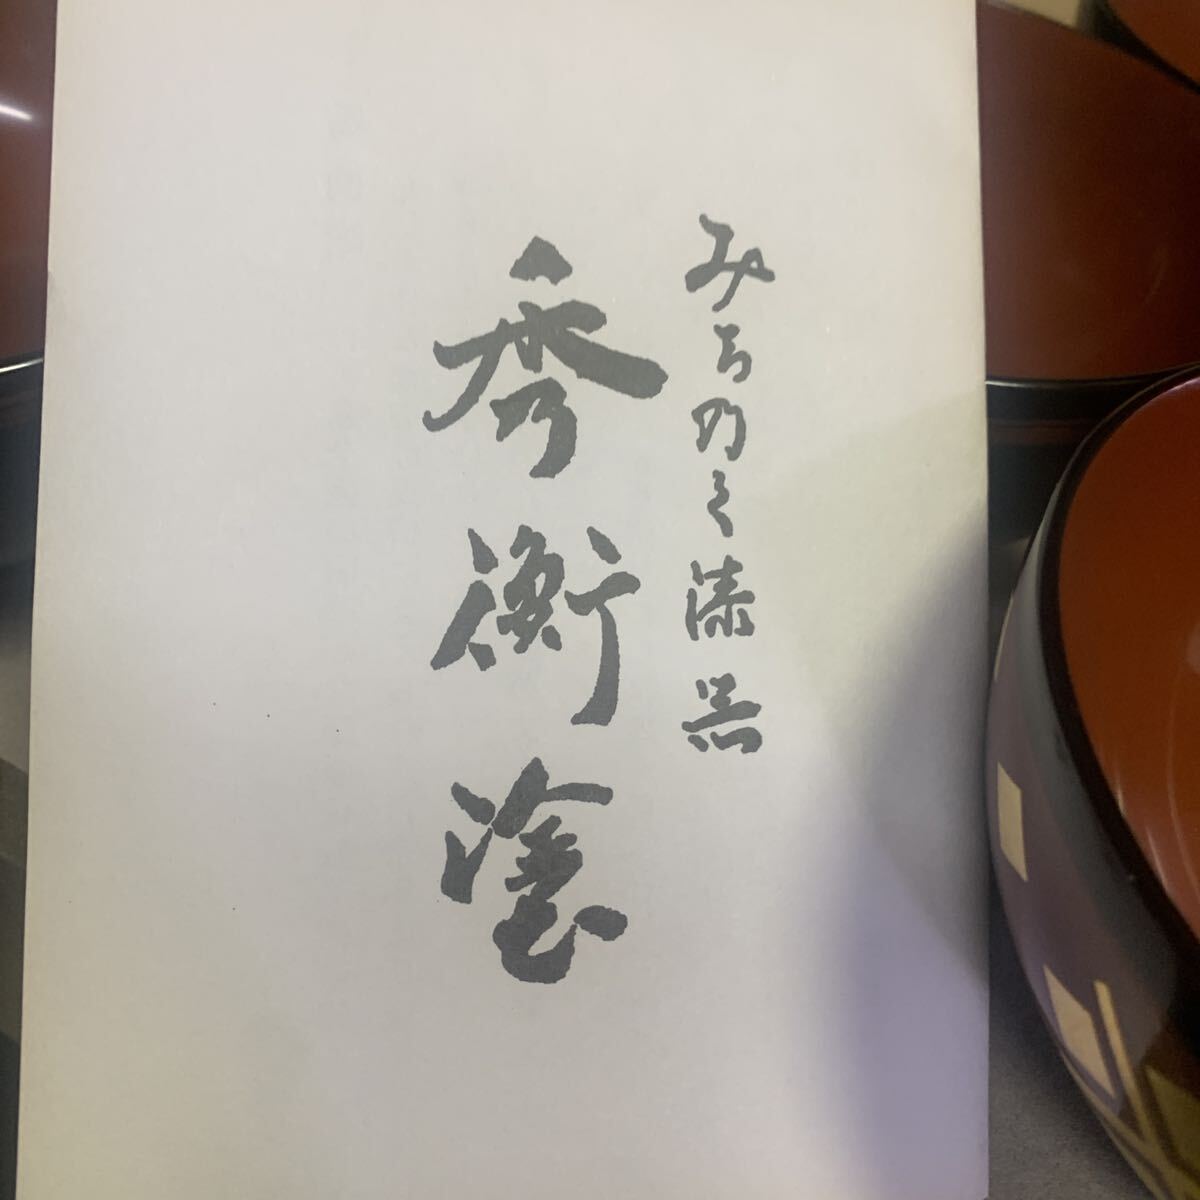 みちのく漆器
秀衡塗